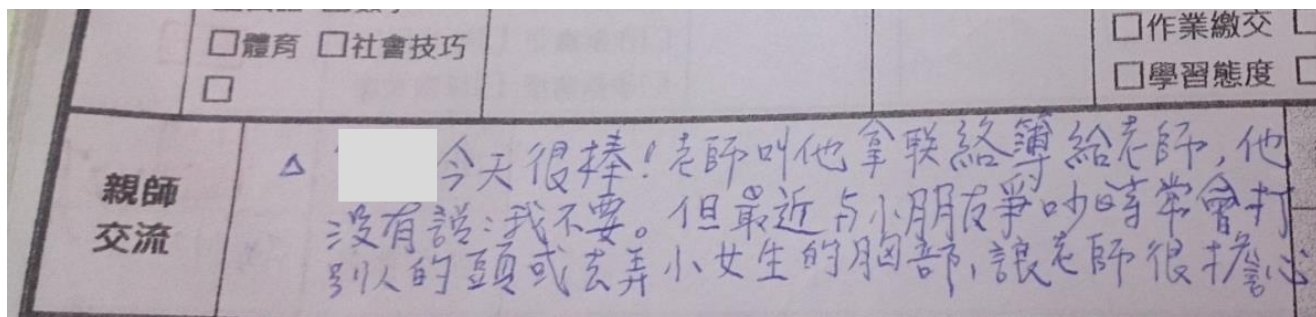 □體育 □社會技巧
□
□作業繳交
□學習態度
親師
交流
△ 今天很棒!老師叫他拿联絡簿給老師,他
沒有說:我不要。但最近与小朋友爭吵時常會打
別人的頭或去弄小女生的胸部,讓老師很擔心